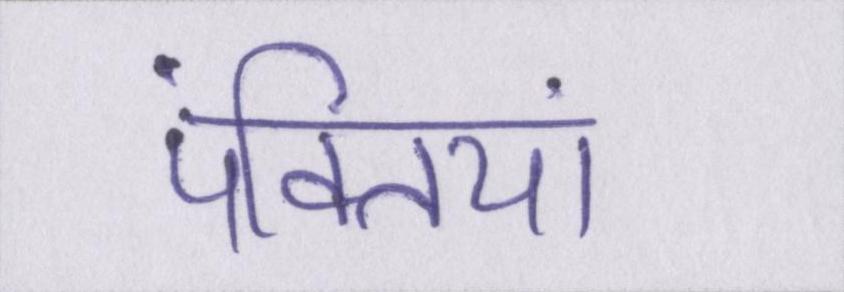 पंक्तियां